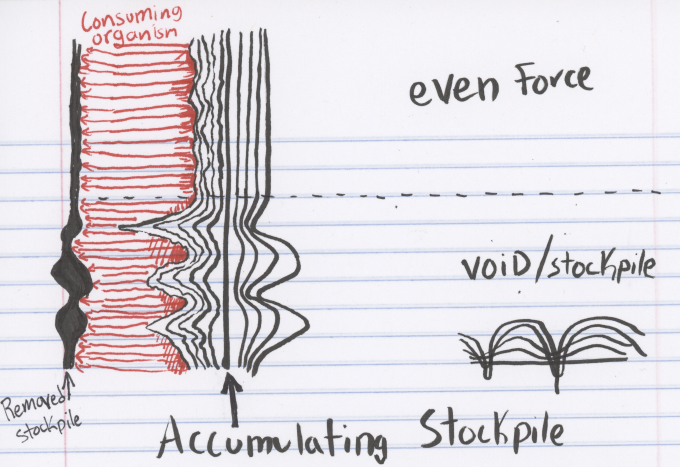 Consuming
organism
even Force
VOID/stockpile
Removed
stockpile
Accumulating Stockpile